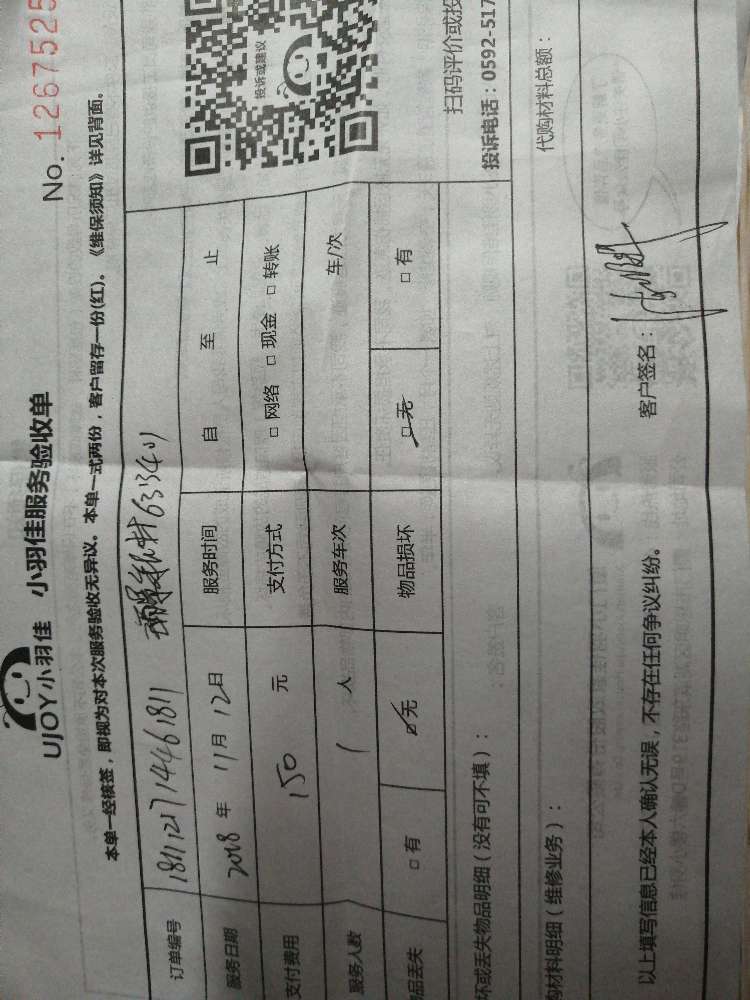 No. 1267525
UJOY小羽佳 小羽佳服务验收单
本单一经核签，即视为对本次服务验收无异议。本单一式两份，客户留存一份(红)。《维保须知》详见背面。
订单编号
服务日期 2018 年 11 月 12 日 服务时间 自 至 止
支付费用 150 元 支付方式 □ 网络 □ 现金 □ 转账
服务人数 1 人 服务车次 车/次
品丢失 □ 有 □ 无 物品损坏 □ 无 □ 有
投诉或建议
扫码评价或投
投诉电话：0592-517
坏或丢失物品明细（没有可不填）：
购材料明细（维修业务）：
代购材料总额：
以上填写信息已经本人确认无误，不存在任何争议纠纷。
客户签名：